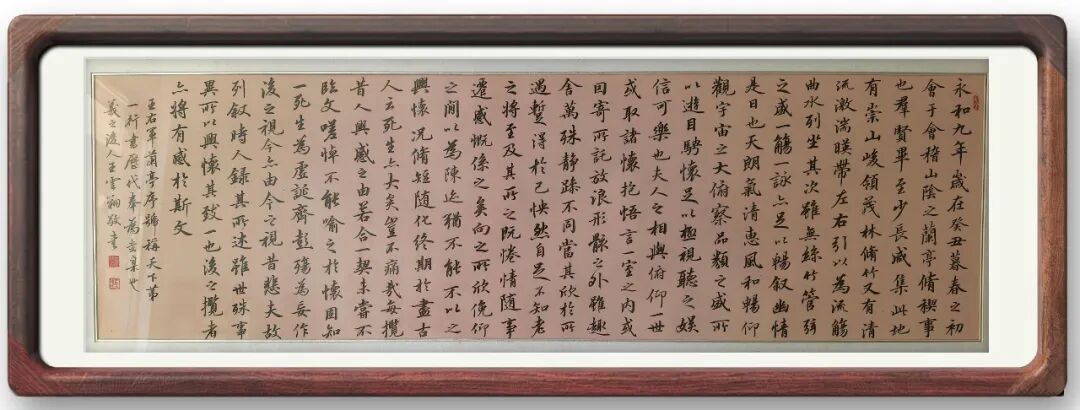 永和九年歲在癸丑暮春之初
會于會稽山陰之蘭亭脩稧事
也羣賢畢至少長咸集此地
有崇山峻領茂林脩竹又有清
流激湍暎帶左右引以為流觴
曲水列坐其次雖無絲竹管弦
之盛一觴一詠亦足以暢叙幽情
是日也天朗氣清惠風和暢仰
觀宇宙之大俯察品類之盛所
以遊目騁懷足以極視聽之娛
信可樂也夫人之相與俯仰一世
或取諸懷抱悟言一室之內或
因寄所託放浪形骸之外雖趣
舍萬殊靜躁不同當其欣於所
遇蹔得於己怏然自足不知老
之將至及其所之既惓情隨事
遷感慨係之矣向之所欣俛仰
之間以為陳迹猶不能不以之
興懷況脩短隨化終期於盡古
人云死生亦大矣豈不痛哉每攬
昔人興感之由若合一契未嘗不
臨文嗟悼不能喻之於懷固知
一死生為虛誕齊彭殤為妄作
後之視今亦由今之視昔悲夫故
列叙時人錄其所述雖世殊事
異所以興懷其致一也後之攬者
亦將有感於斯文
王右軍蘭亭序號稱天下第
一行書歷代奉為也
羲後人王雲翔敬書